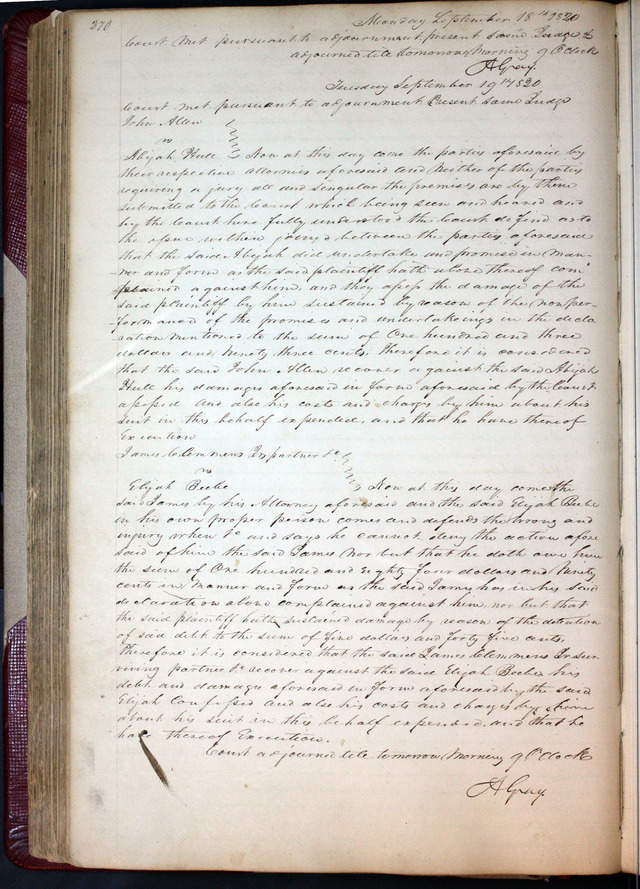 270
Monday September 18th 1820
Court met pursuant to adjournment present same Judge &
adjourned till tomorrow Morning 9 O Clock
A Gray
Tuesday September 19th 1820
Court met pursuant to adjournment Present same Judge
John Allen
vs
Abijah Hull Now at this day come the parties aforesaid by
their respective attornies aforesaid and Neither of the parties
requiring a jury all and singular the premises are by them
submitted to the Court which being seen and heard and
by the Court here fully understood the Court do find as to
the issue within joined between the parties aforesaid
that the said Abijah did undertake and promise in Man-
ner and form as the said plaintiff hath above thereof com
plained against him, and they assess the damage of the
said plaintiff by him sustained by reason of the Non per-
formance of the promises and undertakeings in the decla
ration mentioned to the sum of One hundred and three
dollars and Ninety three cents. Therefore it is considered
that the said John Allen recover against the said Abijah
Hull his damages aforesaid in form aforesaid by the Court
assessed and also his costs and charges by him about his
suit in this behalf expended, and that he have thereof
Execution
James Clemmens Jr partner &c
vs
Elijah Beebe Now at this day comes the
said James by his Attorney aforesaid and the said Elijah Beebe
in his own proper person comes and defends the wrong and
injury when &c and says he cannot deny the action afore
said of him the said James Nor but that he doth owe him
the sum of One hundred and eighty four dollars and Ninety
cents in Manner and form as the said James has in his said
declaration above complained against him, nor but that
the said plaintiff hath sustained damage by reason of the detention
of said debt to the sum of five dollars and forty five cents,
Therefore it is considered that the said James Clemmens Jr sur
viving partner &c recover against the said Elijah Beebe his
debt and damages aforesaid in form aforesaid by the said
Elijah Confessed and also his costs and charges by him
about his suit in this behalf expended, and that he
have thereof Execution.
Court adjourned till tomorrow Morning 9 O Clock
A Gray